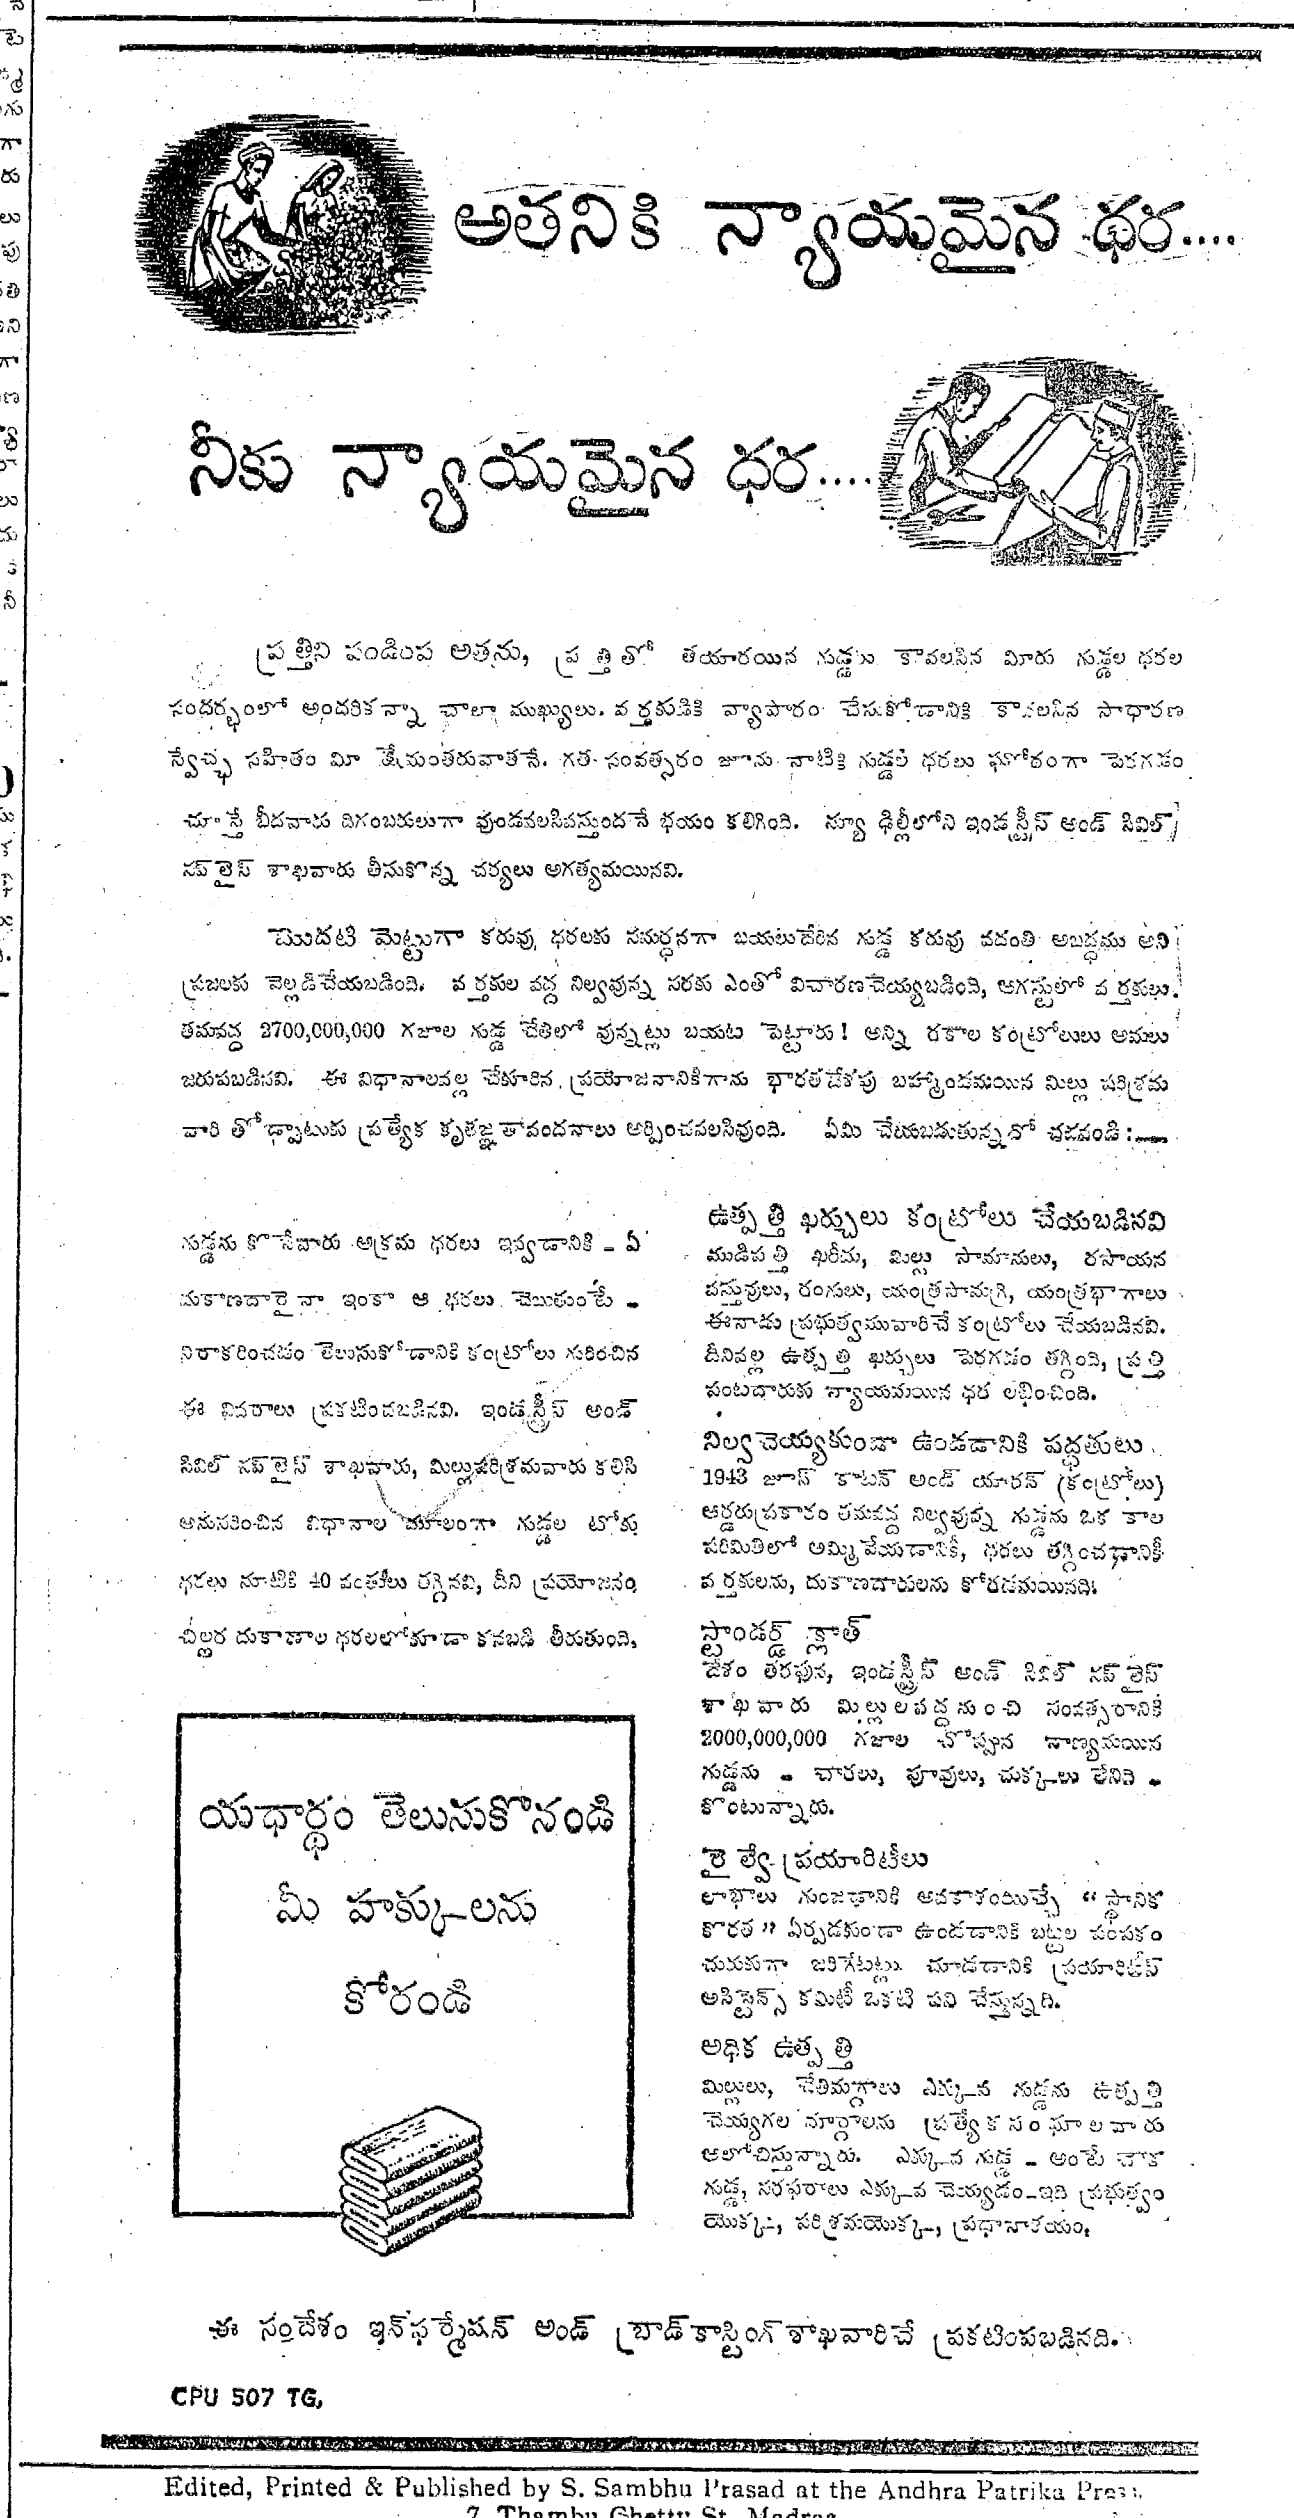 అతనికి న్యాయమైన ధర....
నీకు న్యాయమైన ధర....
ప్రత్తిని పండింప అతను, ప్రత్తితో తయారయిన గుడ్డలు కావలసిన మీరు గుడ్డల ధరల
సందర్భంలో అందరికన్నా చాలా ముఖ్యులు. వర్తకుడికి వ్యాపారం చేసుకోడానికి కావలసిన సాధారణ
స్వేచ్ఛ సహితం మీ క్షేమంతరువాతనే. గత సంవత్సరం జూను నాటికి గుడ్డల ధరలు ఘోరంగా పెరగడం
చూస్తే బీదవారు దిగంబరులుగా వుండవలసివస్తుందనే భయం కలిగింది. న్యూ ఢిల్లీలోని ఇండస్ట్రీస్ అండ్ సివిల్
సప్లైస్ శాఖవారు తీసుకొన్న చర్యలు అగత్యమయినవి.
మొదటి మెట్టుగా కరువు ధరలకు సమర్ధనగా బయలుదేరిన గుడ్డ కరువు వదంతి అబద్ధము అని
ప్రజలకు వెల్లడిచేయబడింది. వర్తకుల వద్ద నిల్వవున్న సరకు ఎంతో విచారణచెయ్యబడింది, ఆగస్టులో వర్తకులు
తమవద్ద 2700,000,000 గజాల గుడ్డ చేతిలో వున్నట్లు బయట పెట్టారు! అన్ని రకాల కంట్రోలులు అమలు
జరుపబడినవి. ఈ విధానాలవల్ల చేకూరిన ప్రయోజనానికిగాను భారతదేశపు బహ్మాండమయిన మిల్లు పరిశ్రమ
వారి తోడ్పాటుకు ప్రత్యేక కృతజ్ఞతావందనాలు అర్పించవలసివుంది. ఏమి చేయబడుతున్నదో చదవండి:—
గుడ్డను కొనేవారు అక్రమ ధరలు ఇవ్వడానికి - ఏ
దుకాణదారైనా ఇంకా ఆ ధరలు చెబుతుంటే -
నిరాకరించడం తెలుసుకోడానికి కంట్రోలు గురించిన
ఈ వివరాలు ప్రకటించబడినవి. ఇండస్ట్రీస్ అండ్
సివిల్ సప్లైస్ శాఖవారు, మిల్లుపరిశ్రమవారు కలిసి
అనుసరించిన విధానాల మూలంగా గుడ్డల టోకు
ధరలు నూటికి 40 వంతులు తగ్గినవి, దీని ప్రయోజనం
చిల్లర దుకాణాల ధరలలోకూడా కనబడి తీరుతుంది,
యథార్థం తెలుసుకొనండి
మీ హక్కులను
కోరండి
ఉత్పత్తి ఖర్చులు కంట్రోలు చేయబడినవి
ముడిపత్తి ఖరీదు, మిల్లు సామానులు, రసాయన
వస్తువులు, రంగులు, యంత్రసామగ్రి, యంత్రభాగాలు
ఈనాడు ప్రభుత్వమువారిచే కంట్రోలు చేయబడినవి.
దీనివల్ల ఉత్పత్తి ఖర్చులు పెరగడం తగ్గింది, ప్రత్తి
పంటదారుకు న్యాయమయిన ధర లభించింది.
నిల్వచెయ్యకుండా ఉండడానికి పద్ధతులు
1943 జూన్ కాటన్ అండ్ యారన్ (కంట్రోలు)
ఆర్డరుప్రకారం తమవద్ద నిల్వవున్న గుడ్డను ఒక కాల
పరిమితిలో అమ్మివేయడానికీ, ధరలు తగ్గించడానికీ
వర్తకులను, దుకాణదారులను కోరడమయినది.
స్టాండర్డ్ క్లాత్
దేశం తరఫున, ఇండస్ట్రీస్ అండ్ సివిల్ సప్లైస్
శాఖవారు మిల్లులవద్దనుంచి సంవత్సరానికి
2000,000,000 గజాల చొప్పున నాణ్యమయిన
గుడ్డను - చారలు, పూవులు, చుక్కలు లేనిది -
కొంటున్నారు.
రైల్వే ప్రయారిటీలు
లాభాలు గుంజడానికి అవకాశంయిచ్చే “స్థానిక
కొరత” ఏర్పడకుండా ఉండడానికి బట్టల పంపకం
చురుకుగా జరిగేటట్లు చూడడానికి ప్రయారిటీస్
అసిస్టెన్స్ కమిటీ ఒకటి పని చేస్తున్నది.
అధిక ఉత్పత్తి
మిల్లులు, చేతిమగ్గాలు ఎక్కువ గుడ్డను ఉత్పత్తి
చెయ్యగల మార్గాలను ప్రత్యేకసంఘాలవారు
ఆలోచిస్తున్నారు. ఎక్కువ గుడ్డ - అంటే చౌక
గుడ్డ, సరఫరాలు ఎక్కువ చెయ్యడం-ఇది ప్రభుత్వం
యొక్క, పరిశ్రమయొక్క, ప్రధానాశయం.
ఈ సందేశం ఇన్‌ఫర్మేషన్ అండ్ బ్రాడ్‌కాస్టింగ్‌శాఖవారిచే ప్రకటింపబడినది.
CPU 507 TG,
Edited, Printed & Published by S. Sambhu Prasad at the Andhra Patrika Press,
7, Thambu Chetty St. Madras